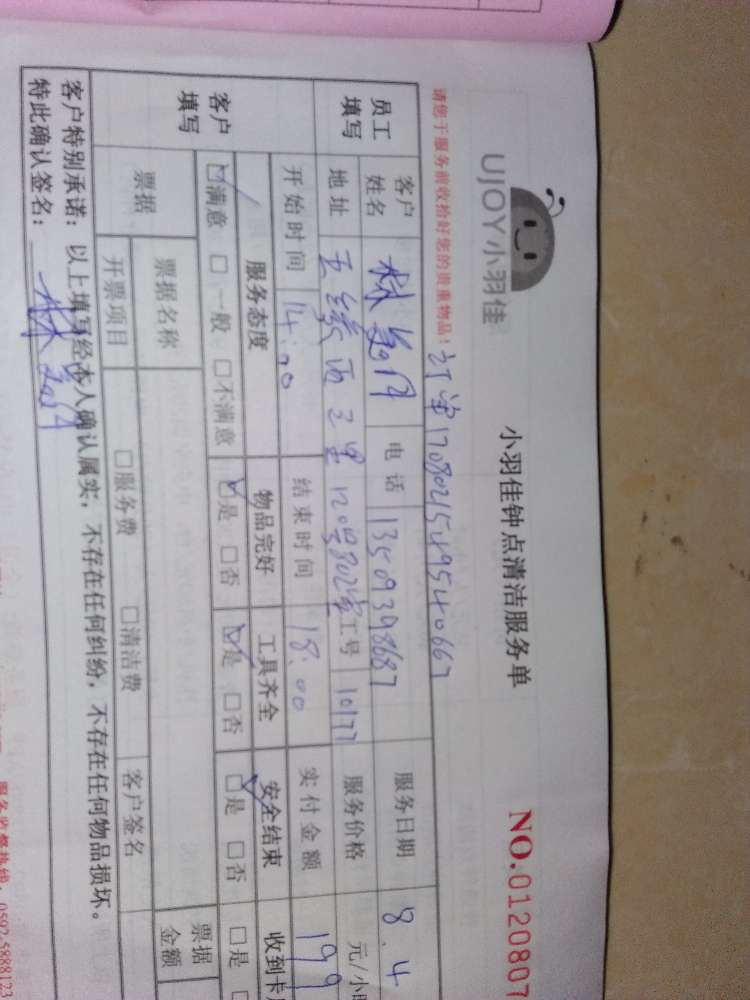 UJOY小羽佳
小羽佳钟点清洁服务单
NO.0120807
请您于服务前收拾好您的贵重物品！订单1708021549540667
员工填写 客户姓名 电话 13509398687 服务日期 8.4
地址 五缘西三里120号802室 工号 10177 服务价格 元/小时
客户填写 开始时间 14:00 结束时间 18:00 实付金额 199
服务态度 物品完好 工具齐全 安全结束 收到卡
☑满意 □一般 □不满意 ☑是 □否 ☑是 □否 □是 □否 □是
票据 票据名称 票据金额
开票项目 □服务费 □清洁费 客户签名
客户特别承诺：以上填写经本人确认属实，不存在任何纠纷，不存在任何物品损坏。
特此确认签名：
服务监督热线：0592-5888123